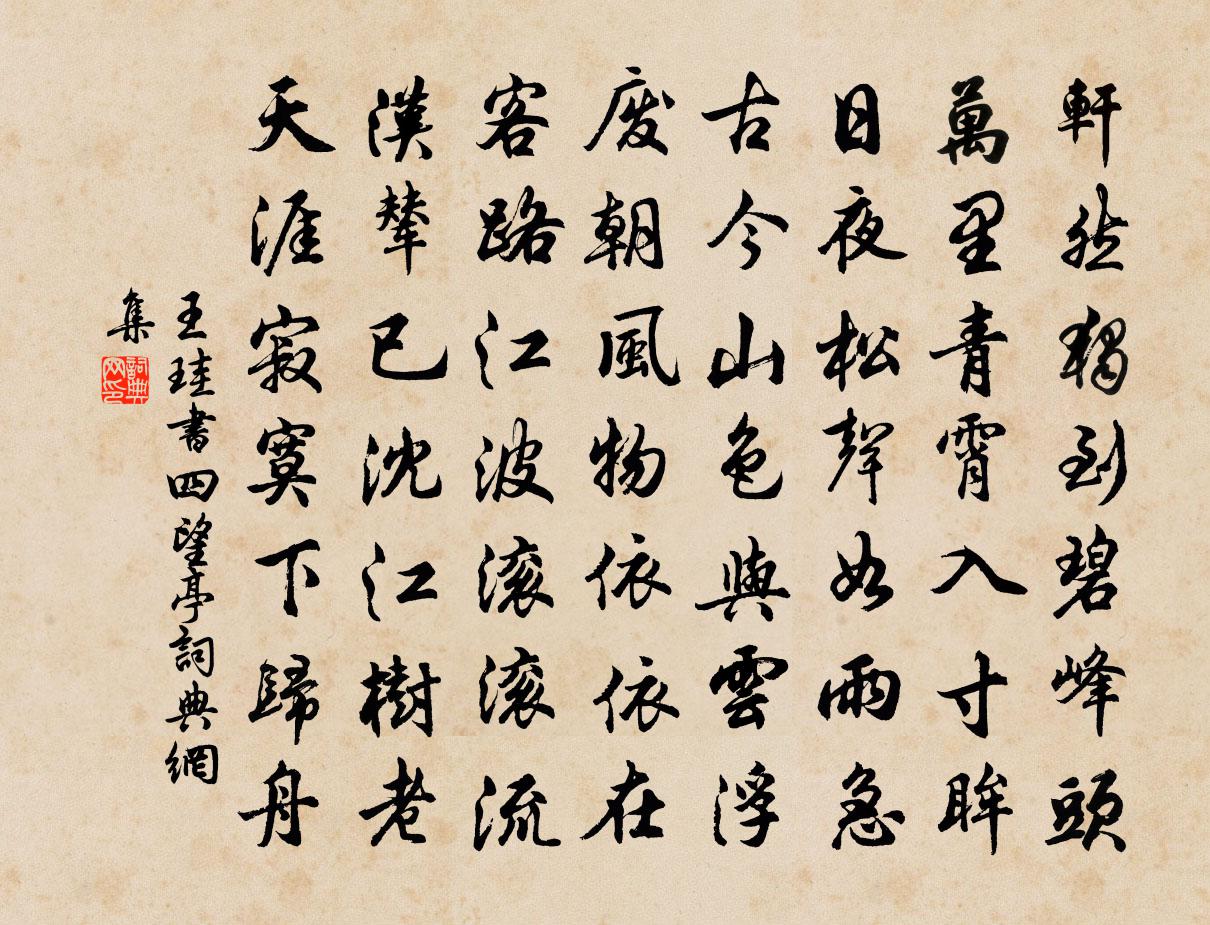 軒然獨到碧峰頭
萬里青霄入寸眸
日夜松聲如雨急
古今山色與雲浮
廢朝風物依依在
客路江波滚滚流
漢輦已沈江樹老
天涯寂寞下歸舟
王珪書四望亭詞典網
集
詞典网印